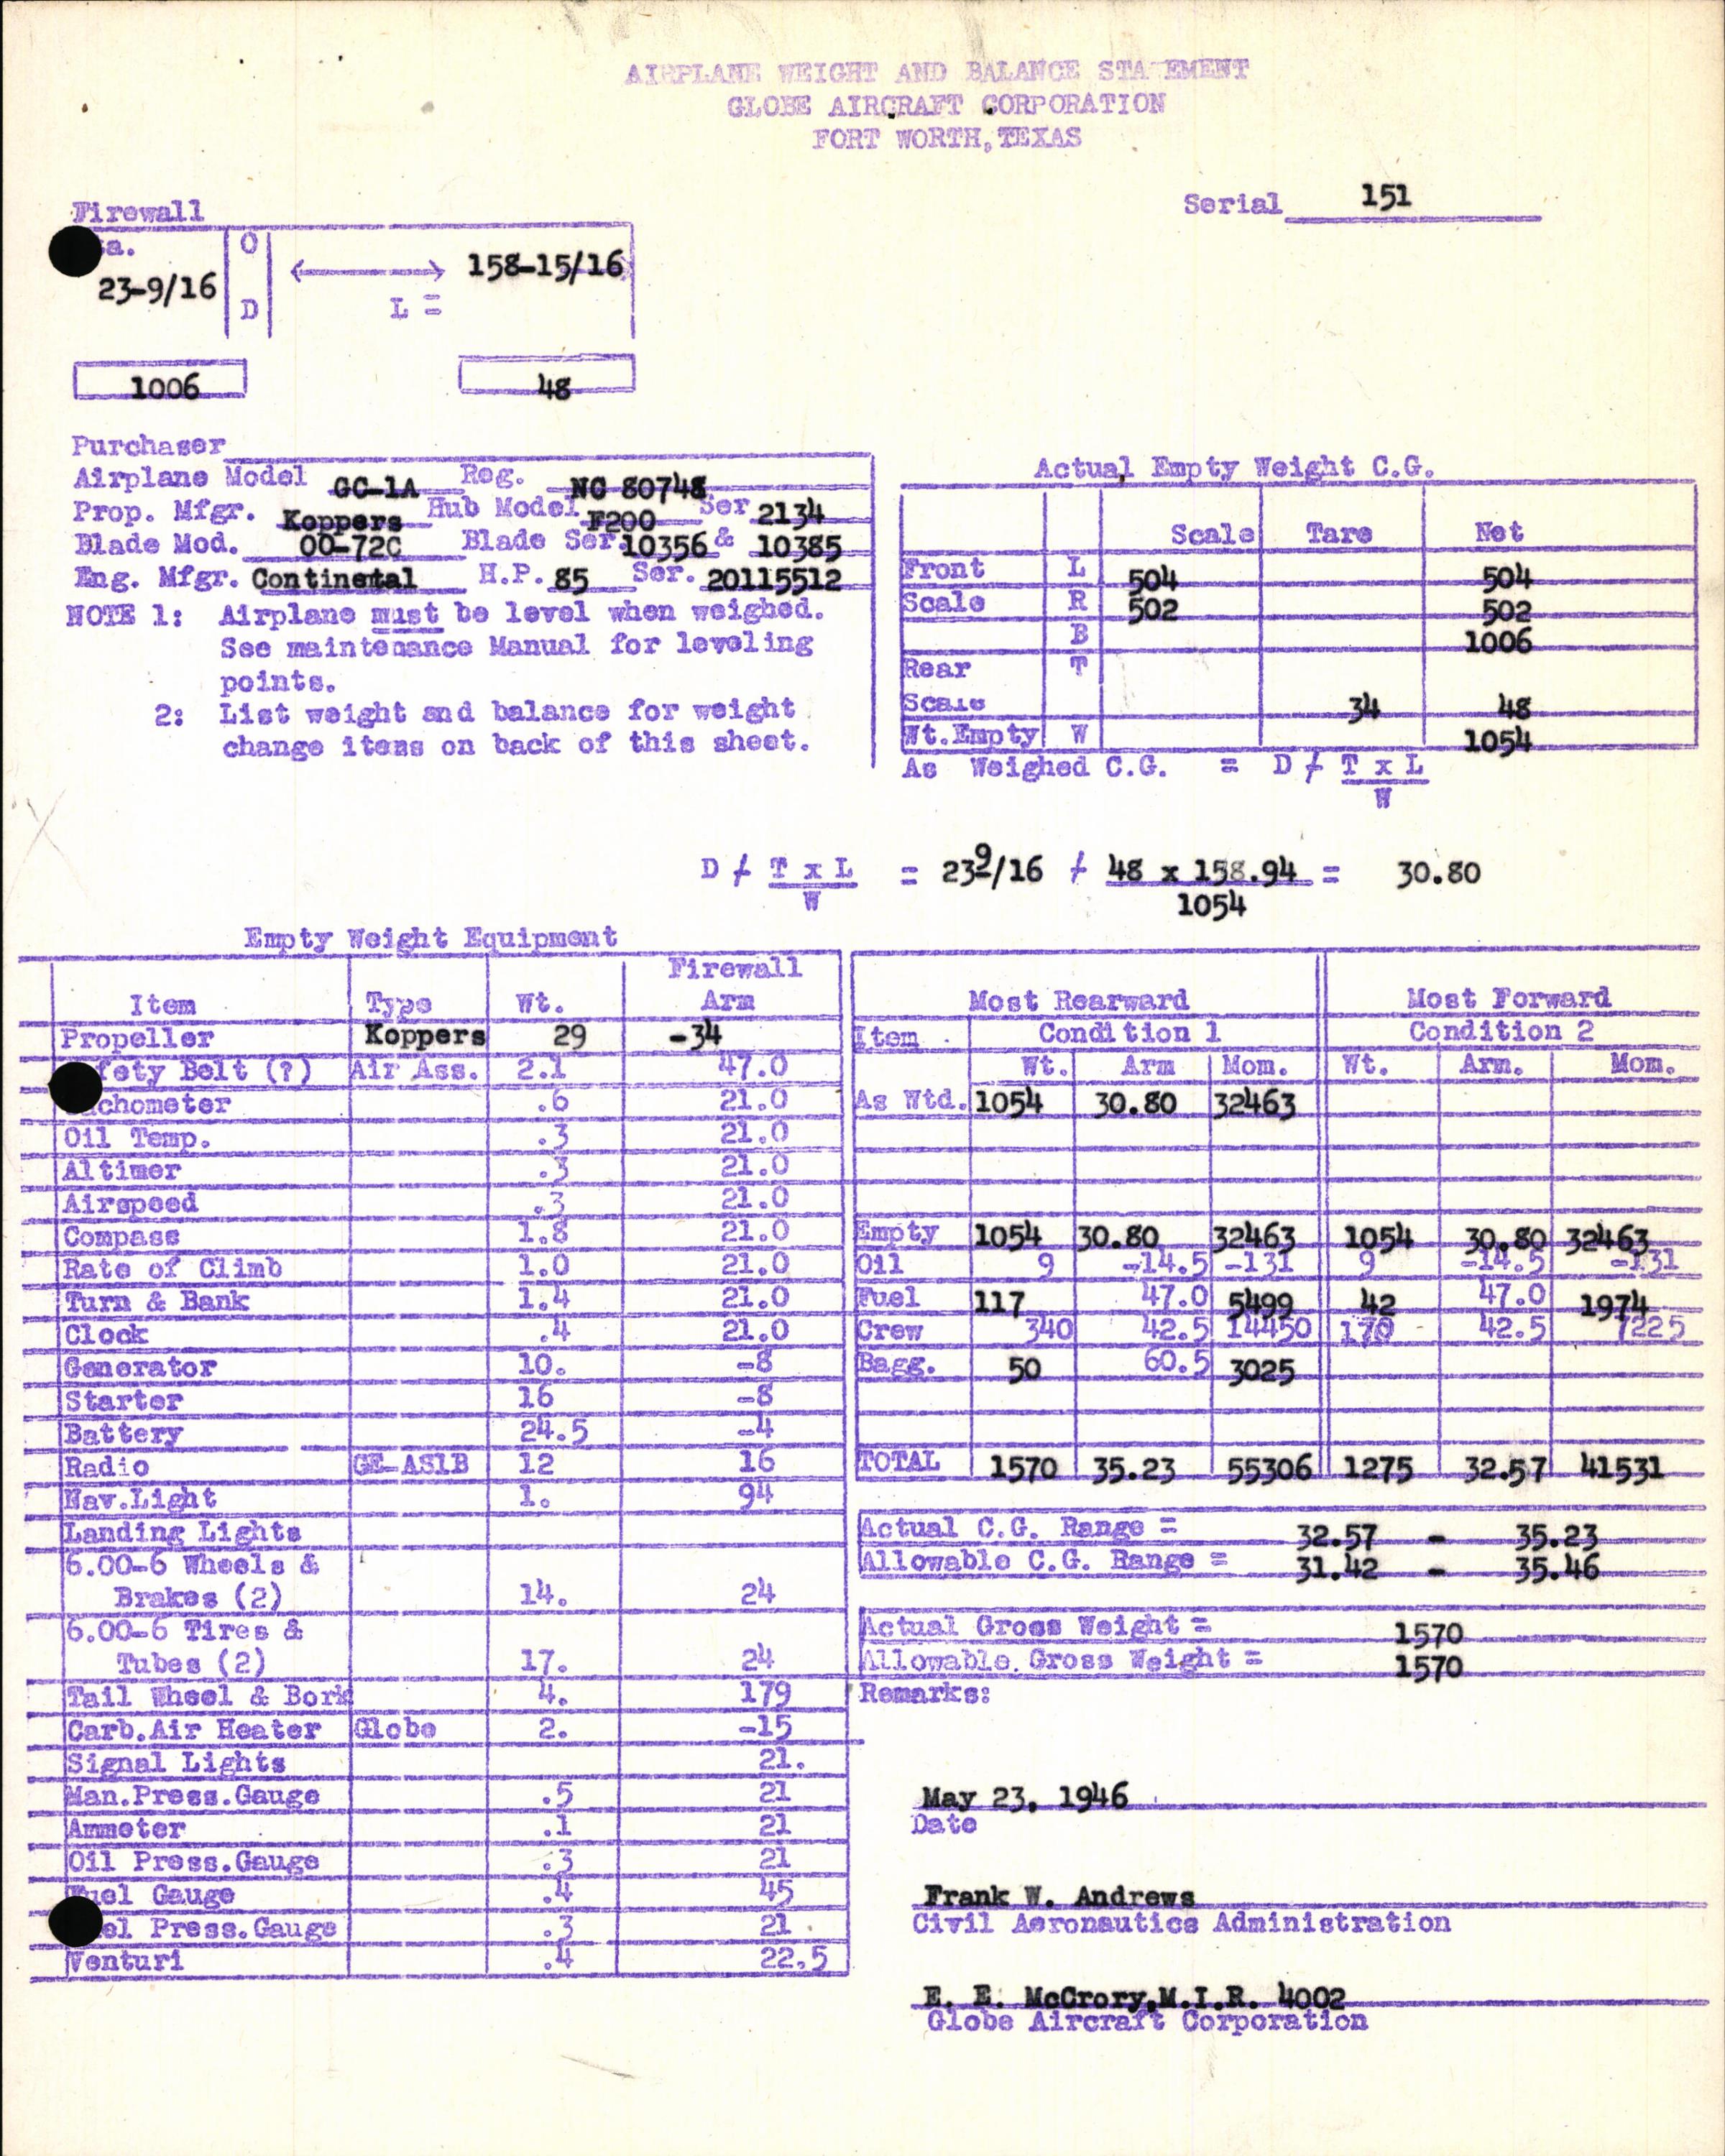 AIRPLANE WEIGHT AND BALANCE STATEMENT
GLOBE AIRCRAFT CORPORATION
FORT WORTH, TEXAS
Serial 151
Firewall
ta.
23-9/16 O D L = 158-15/16
1006 48
Purchaser
Airplane Model GC-1A Reg. NC 80748
Prop. Mfgr. Koppers Hub Model F200 Ser 2134
Blade Mod. 00-72C Blade Ser. 10356 & 10385
Eng. Mfgr. Continental H.P. 85 Ser. 20115512
NOTE 1: Airplane must be level when weighed.
See maintenance Manual for leveling
points.
2: List weight and balance for weight
change items on back of this sheet.
Actual Empty Weight C.G.
Scale Tare Net
Front L 504 504
Scale R 502 502
B 1006
Rear T
Scale 34 48
Wt.Empty W 1054
As Weighed C.G. = D / T x L
W
D / T x L = 23 9/16 / 48 x 158.94 = 30.80
W 1054
Empty Weight Equipment
Firewall
Item Type Wt. Arm
Propeller Koppers 29 -34
fety Belt (?) Air Ass. 2.1 47.0
chometer .6 21.0
Oil Temp. .3 21.0
Altimer .3 21.0
Airspeed .3 21.0
Compass 1.8 21.0
Rate of Climb 1.0 21.0
Turn & Bank 1.4 21.0
Clock .4 21.0
Generator 10. -8
Starter 16 -8
Battery 24.5 -4
Radio GE-AS1B 12 16
Nav.Light 1. 94
Landing Lights
6.00-6 Wheels &
Brakes (2) 14. 24
6.00-6 Tires &
Tubes (2) 17. 24
Tail Wheel & Bork 4. 179
Carb.Air Heater Globe 2. -15
Signal Lights 21.
Man.Press.Gauge .5 21
Ammeter .1 21
Oil Press.Gauge .3 21
Fuel Gauge .4 45
el Press.Gauge .3 21
Venturi .4 22.5
Most Rearward Most Forward
Item Condition 1 Condition 2
Wt. Arm Mom. Wt. Arm. Mom.
As Wtd. 1054 30.80 32463
Empty 1054 30.80 32463 1054 30.80 32463
Oil 9 -14.5 -131 9 -14.5 -131
Fuel 117 47.0 5499 42 47.0 1974
Crew 340 42.5 14450 170 42.5 7225
Bagg. 50 60.5 3025
TOTAL 1570 35.23 55306 1275 32.57 41531
Actual C.G. Range = 32.57 - 35.23
Allowable C.G. Range = 31.42 - 35.46
Actual Gross Weight = 1570
Allowable Gross Weight = 1570
Remarks:
May 23, 1946
Date
Frank W. Andrews
Civil Aeronautics Administration
E. E. McCrory,M.I.R. 4002
Globe Aircraft Corporation